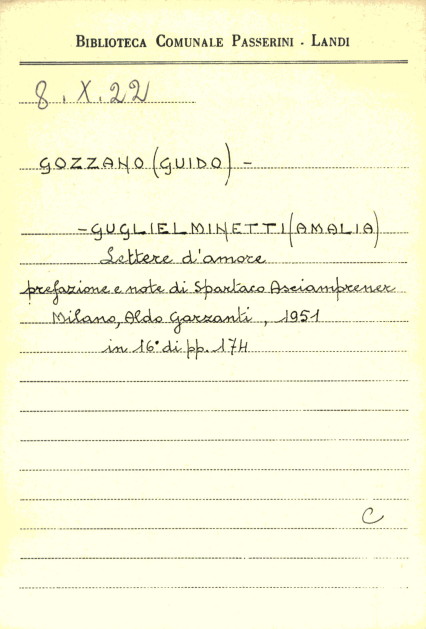 BIBLIOTECA COMUNALE PASSERINI - LANDI
8.X.22
GOZZANO (GUIDO) -
- GUGLIELMINETTI (AMALIA)
Lettere d'amore
prefazione e note di Spartaco Asciamprener
Milano, Aldo Garzanti, 1951
in 16° di pp. 174
C